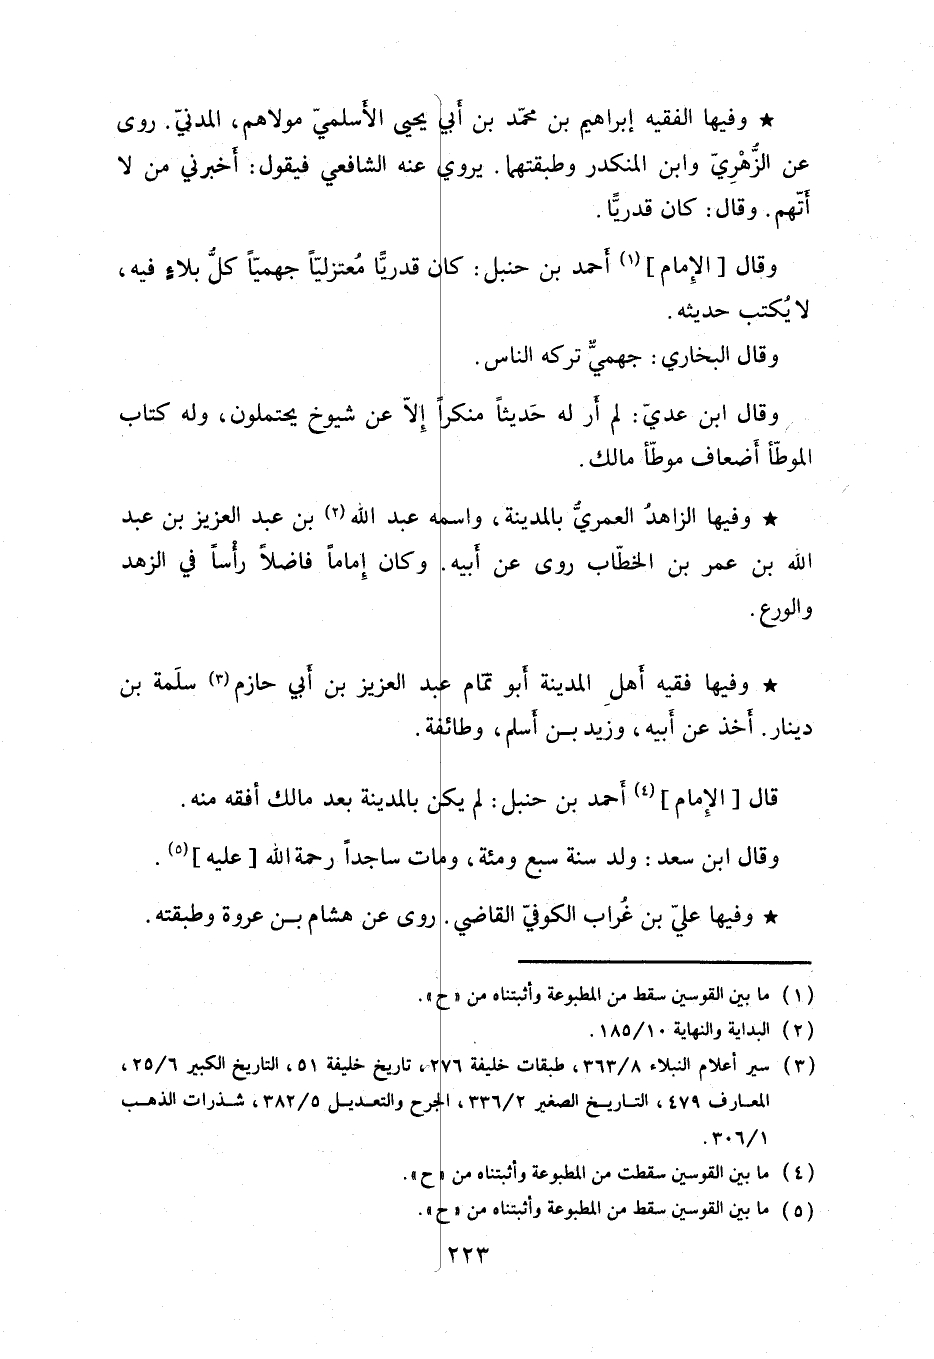 ★ وفيها الفقيه إبراهيم بن محمّد بن أَبي يحيى الأَسلميّ مولاهم، المدنيّ. روى
عن الزُّهْرِيّ وابن المنكدر وطبقتهما. يروي عنه الشافعي فيقول: أَخبرني من لا
أَتّهم. وقال: كان قدريًّا.
وقال [الإِمام](١) أَحمد بن حنبل: كان قدريًّا مُعتزليّاً جهميّاً كلُّ بلاءٍ فيه،
لا يُكتب حديثه.
وقال البخاري: جهميٌّ تركه الناس.
وقال ابن عديّ: لم أَر له حَديثاً منكراً إِلاّ عن شيوخ يحتملون، وله كتاب
الموطّأ أَضعاف موطّأ مالك.
★ وفيها الزاهدُ العمريُّ بالمدينة، واسمه عبد الله(٢) بن عبد العزيز بن عبد
الله بن عمر بن الخطّاب روى عن أَبيه. وكان إِماماً فاضلاً رأْساً في الزهد
والورع.
★ وفيها فقيه أَهلِ المدينة أَبو تمّام عبد العزيز بن أَبي حازم(٣) سلَمة بن
دينار. أَخذ عن أَبيه، وزيد بـن أَسلم، وطائفة.
قال [الإِمام](٤) أَحمد بن حنبل: لم يكن بالمدينة بعد مالك أفقه منه.
وقال ابن سعد: ولد سنة سبع ومئة، ومات ساجداً رحمة الله [عليه](٥).
★ وفيها عليّ بن غُراب الكوفيّ القاضي. روى عن هشام بـن عروة وطبقته.
(١) ما بين القوسين سقط من المطبوعة وأثبتناه من «ح».
(٢) البداية والنهاية ١٨٥/١٠.
(٣) سير أعلام النبلاء ٣٦٣/٨، طبقات خليفة ٢٧٦، تاريخ خليفة ٥١، التاريخ الكبير ٢٥/٦،
المعـارف ٤٧٩، التـاريـخ الصغير ٣٣٦/٢، الجرح والتعـديـل ٣٨٢/٥، شـذرات الذهـب
٣٠٦/١.
(٤) ما بين القوسين سقطت من المطبوعة وأثبتناه من «ح».
(٥) ما بين القوسين سقط من المطبوعة وأثبتناه من «ح».
٢٢٣